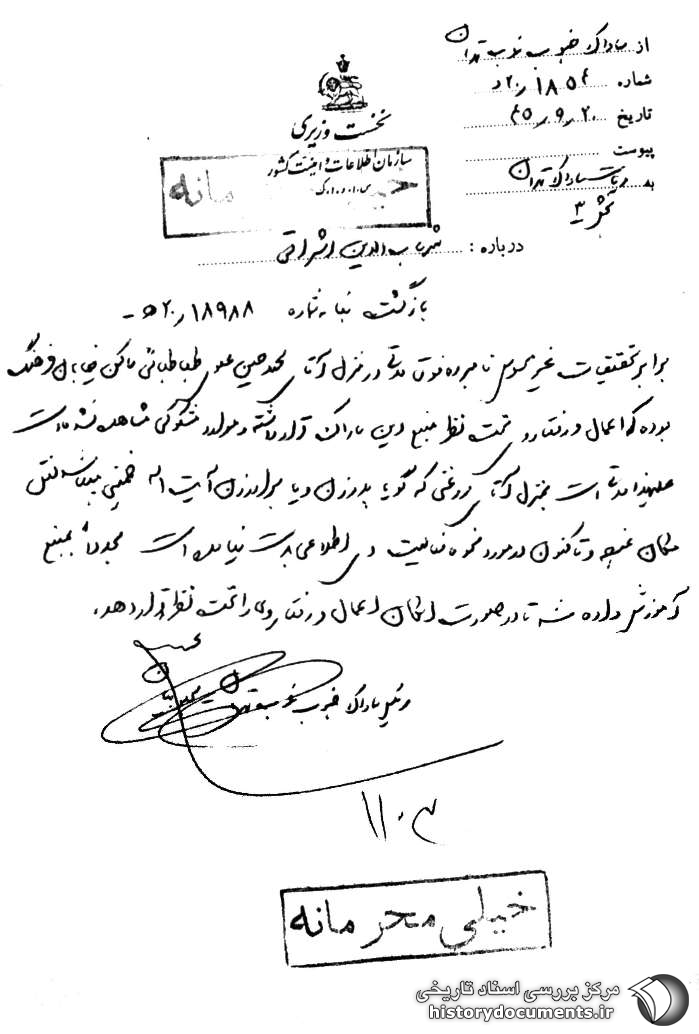 از ساواک جنوب غرب تهران
شماره ۱۸۵۴/۲۰د
تاریخ ۴۵/۹/۲۰
پیوست
به ریاست ساواک تهران
۳
نخست وزیری
سازمان اطلاعات و امنیت کشور
س.ا.و.ا.ک
خیلی محرمانه
درباره : شهاب الدین اشراقی
بازگشت بنامه شماره ۱۸۹۸۸/۲۰ه‍ـ
برابر تحقیقات غیر محسوس نامبرده فوق مدتی در منزل آقای محمد حسین علوی طباطبائی ساکن خیابان فرهنگ
بوده که اعمال و رفتار وی تحت نظر منبع این ساواک قرار داشته و موارد مشکوکی مشاهده نشده است
علیهذا مدتی است بمنزل آقای بروغنی که گویا پدر زن و یا برادر زن آیت اله خمینی میباشد نقل
مکان نموده و تاکنون در مورد نحوه فعالیت وی اطلاعی بدست نیامده است مجدداً بمنبع
آموزش داده شد تا در صورت امکان اعمال و رفتار وی را تحت نظر قرار دهد.
رئیس ساواک جنوب غرب تهران
۱۱۰۳
خیلی محرمانه
مرکز بررسی اسناد تاریخی
historydocuments.ir